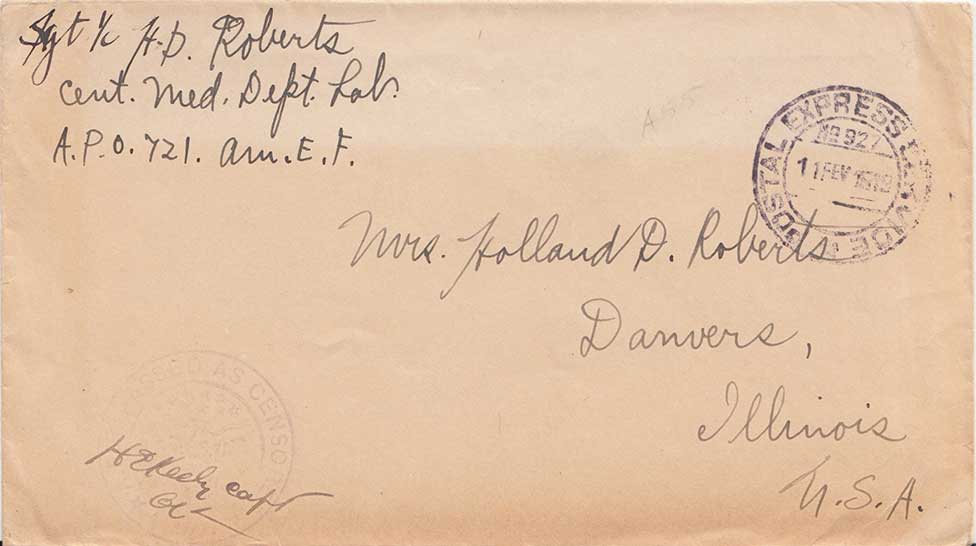 Sgt 1/c H.D. Roberts
Cent. Med. Dept. Lab.
A.P.O. 721. Am. E. F.
POSTAL EXPRESS SERVICE
No 927
11 FEV 1919
Mrs. Holland D. Roberts
Danvers,
Illinois
U.S.A.
PASSED AS CENSO
Capt